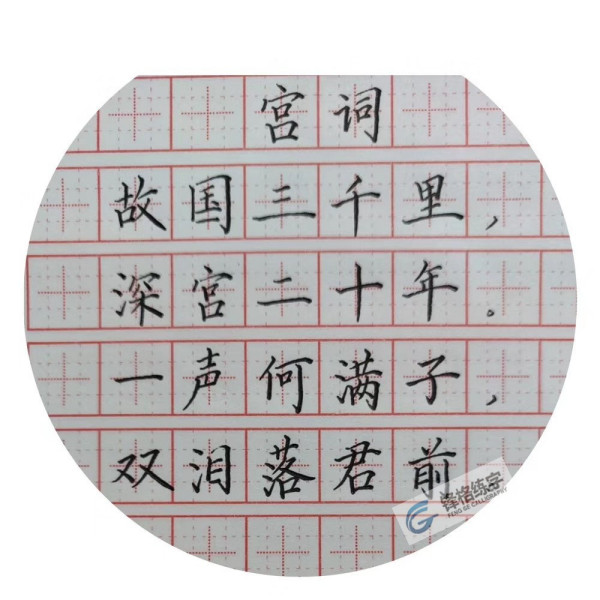 宫词
故国三千里，
深宫二十年。
一声何满子，
双泪落君前
锋格练字
FENG GE CALLIGRAPHY